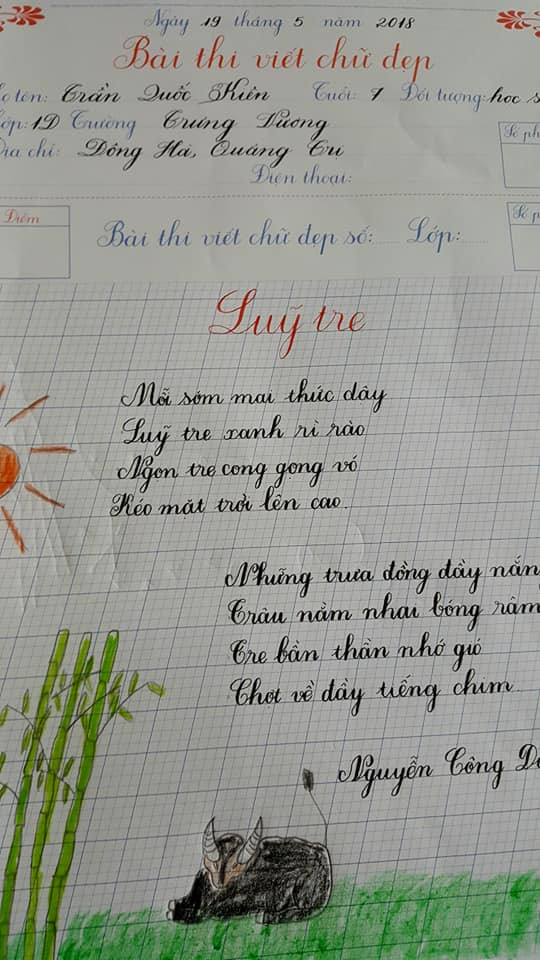 Ngày 19 tháng 5 năm 2018
Bài thi viết chữ đẹp
ọ tên: Trần Quốc Kiên Tuổi: 7 Đối tượng: học s
ớp: 1D Trường Trưng Vương
Địa chỉ: Đông Hà, Quảng Trị
Điện thoại:
Số ph
Điểm
Bài thi viết chữ đẹp số: Lớp:
Số p
Luỹ tre
Mỗi sớm mai thức dậy
Luỹ tre xanh rì rào
Ngọn tre cong gọng vó
Kéo mặt trời lên cao.
Những trưa đồng đầy nắn
Trâu nằm nhai bóng râm
Tre bần thần nhớ gió
Chợt về đầy tiếng chim.
Nguyễn Công D